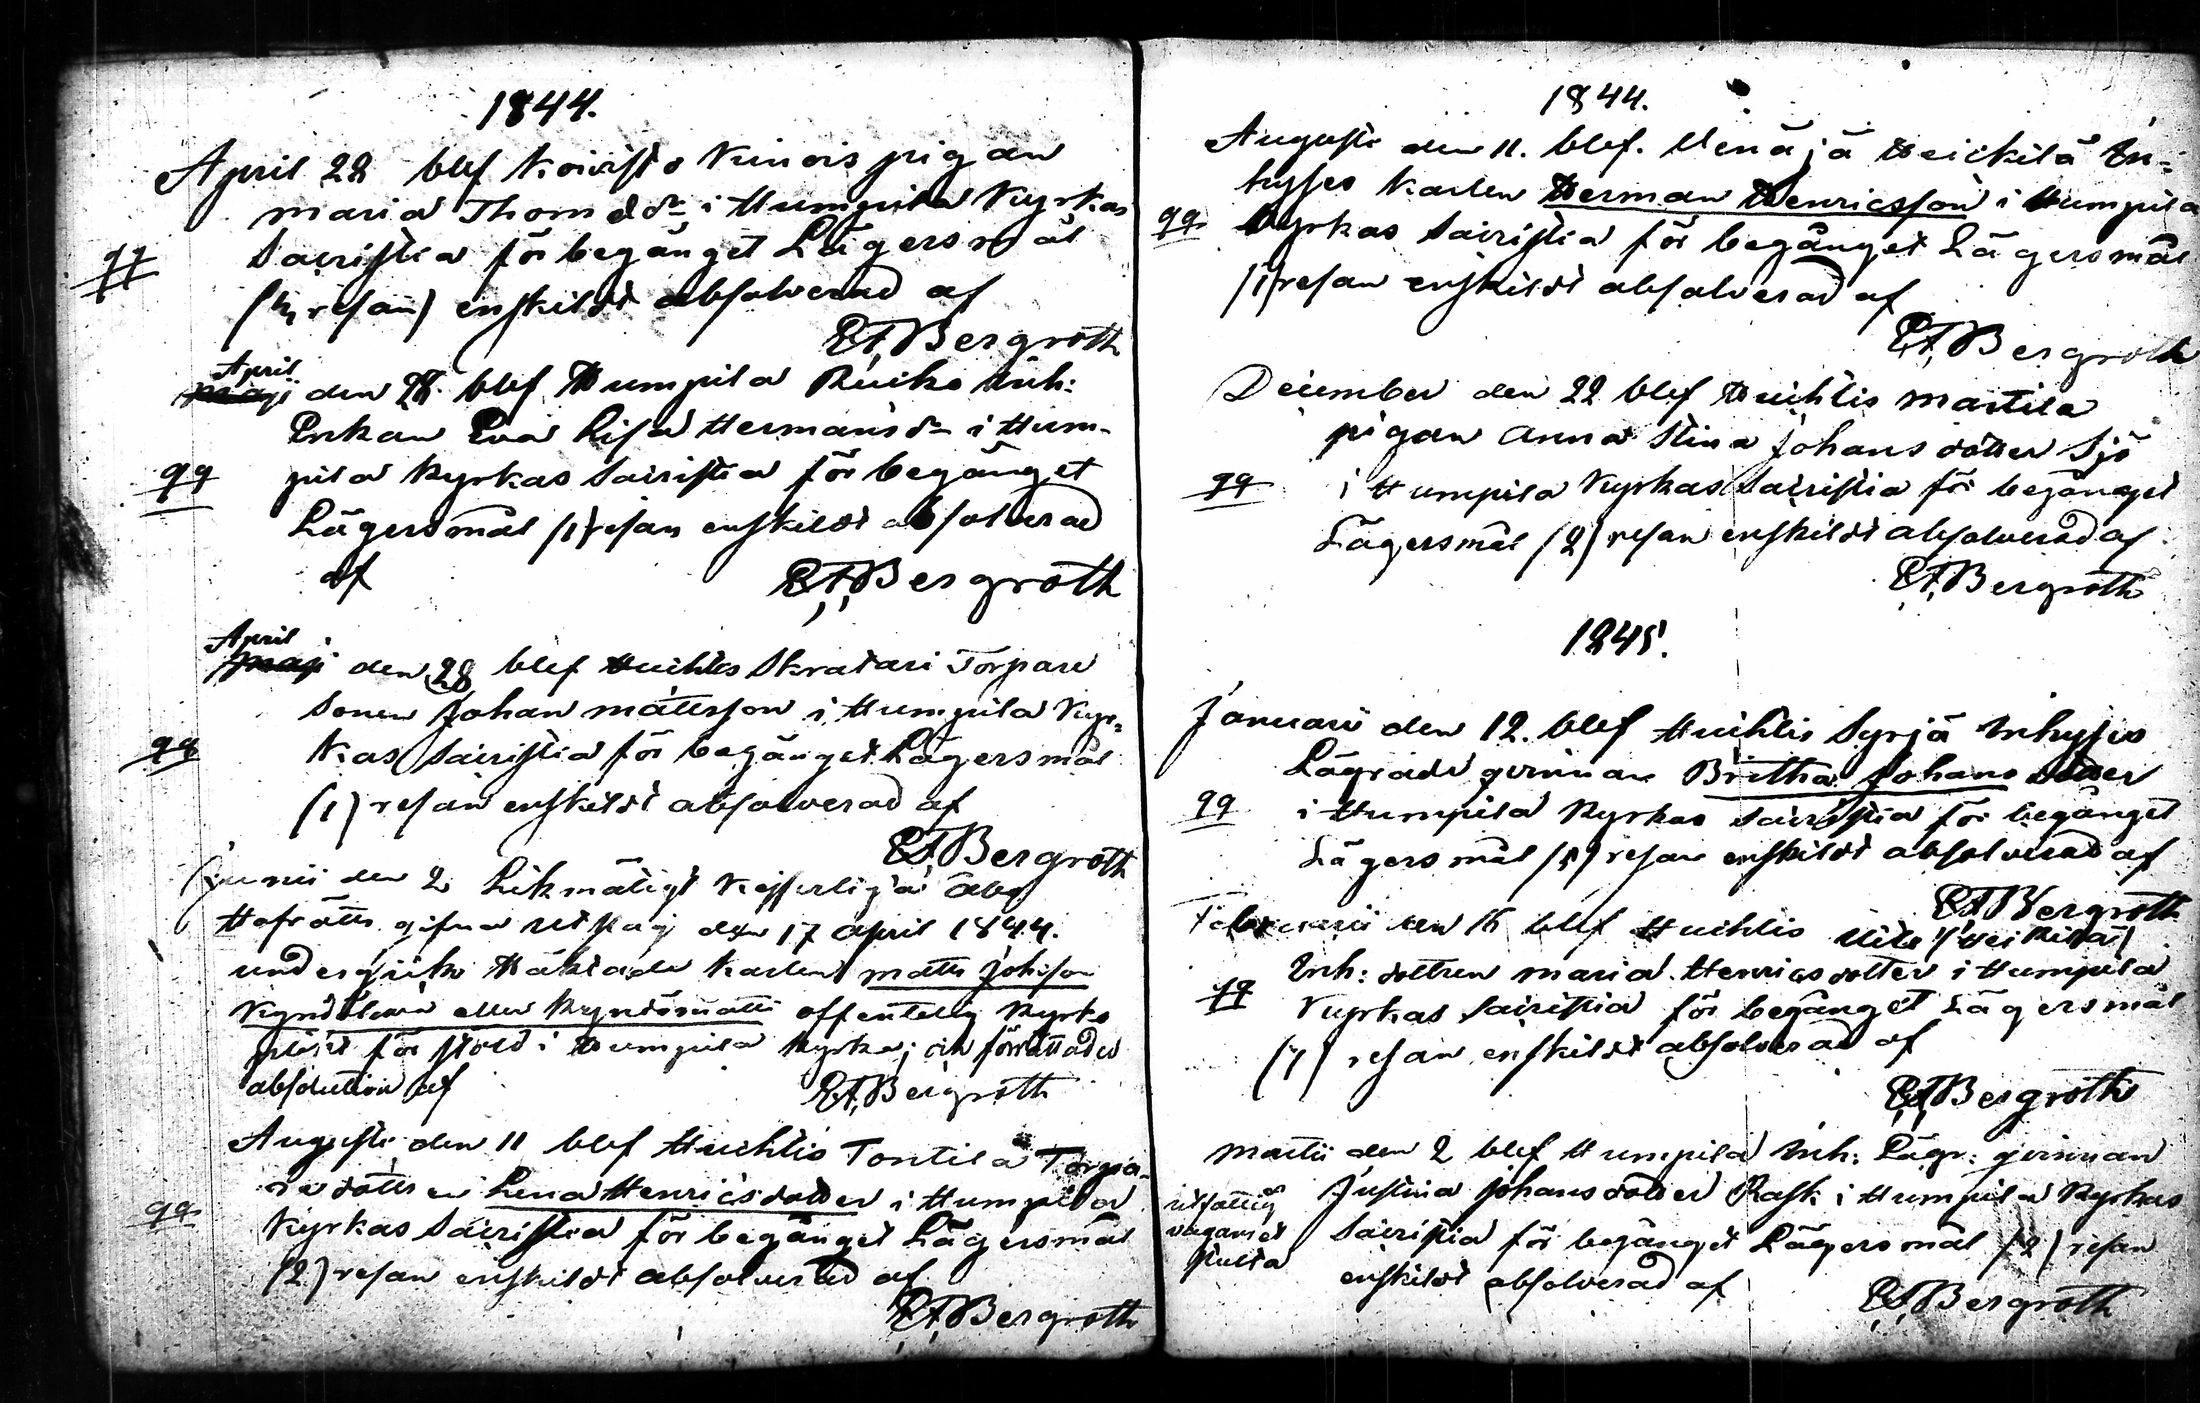 1844.
April 28 blef Koivisto Kunois pigan
Maria Thom dr i Humpila Kyrkas
Sacristia för begånget Lägersmål
resan) enskildt absolverad af
EABergroth
April
Maji den 28 blef Humpila Ruiko Inh:
Enkan Eva Lisa Hermans dr i Hum-
qq pila Kyrkas Sacristia för begånget
Lägersmål (1) resan enskildt absolverad
af EABergroth
April
Maji den 28 blef Huhtis Skratari Torpare
Sonen Johan Mattsson i Humpila Kyr=
qq kas Sacristia för begånget Lägersmål
(1) resan enskildt absolverad af
EABergroth
Junii den 2 Likmätigt Kejserliga Åbo
Hofrätts gifna utslag den 17 April 1844.
undergick Häktade Karlen Matts Johsson
eller offentelig Kyrko
plikt för stöld i Humpila Kyrka; och förrättades
absolution af EABergroth
Augusti den 11 blef Huhtis Tontila Torpa-
redottren Lena Henricsdotter i Humpila
qq Kyrkas Sacristia för begånget Lägersmål
(2) resan enskildt absolverad af
EABergroth
1844.
Augusti den 11. blef. Heickilä In=
hyses Karlen Herman Henricsson i Humpila
qq Kyrkas Sacristia för begånget Lägersmål
(1) resan enskildt absolverad af
EABergroth
December den 22 blef Huhtis Martila
pigan Anna Stina Johansdotter Sjö
qq i Humpila Kyrkas Sacristia för begånget
Lägersmål (2) resan enskildt absolverad af
EABergroth
1845.
Januarii den 12. blef Huhtis Syrjä Inhyses
Lägrade qvinnan Britha Johansdotter
qq i Humpila Kyrkas Sacristia för begånget
Lägersmål resan enskildt absolverad af
EABergroth
Februarii den 16 blef Huhtis (Heikkilä)
Inh: dottren Maria Henricsdotter i Humpila
qq Kyrkas Sacristia för begånget Lägersmål
(1) resan enskildt absolverad af
EABergroth
Martii den 2 blef Humpila Inh: Lägr: qvinnan
utfattig Justina Johansdotter Rask i Humpila Kyrkas
Sacristia för begånget Lägersmål (2) resan
enskildt absolverad af
EABergroth